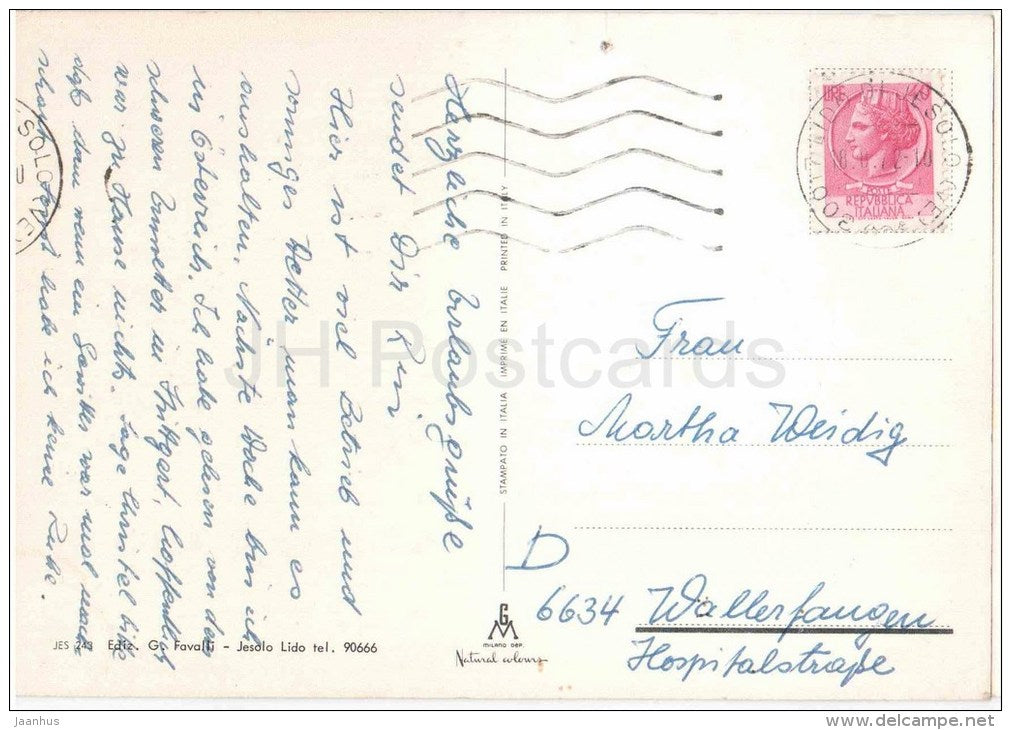 Herzliche Urlaubsgrüße
sendet Dir
Hier ist viel Betrieb und
sonniges Wetter man kann es
aushalten. Nächste Woche bin ich
in Österreich. Ich habe gehört von dem
schweren Unwetter in Stuttgart, hoffentlich
war zu Hause nichts. Sage Christel bitte
daß wenn ein Gewitter war mal nach
schaut sonst habe ich keine Ruhe.
STAMPATO IN ITALIA IMPRIME EN ITALIE PRINTED IN ITALY
LIRE
POSTE
REPVBBLICA
ITALIANA
JESOLO
Frau
Martha Weidig
D
6634 Wallerfangen
Hospitalstraße
GM
MILANO DEP.
Natural colours
JES 243 Ediz. G. Favalli - Jesolo Lido tel. 90666
JH Postcards
jaanhus
www.delcampe.net